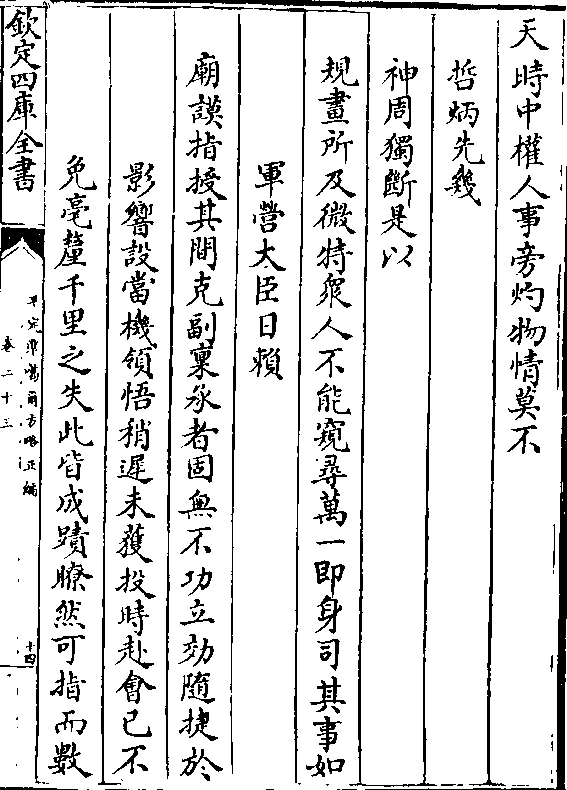 天時中權人事旁灼物情莫不
哲炳先幾
神周獨斷是以
規畫所及微特衆人不能窺尋萬一即身司其事如
軍營大臣日賴
廟謨指授其間克副稟承者固無不功立効隨捷於
影響設當機領悟稍遲未獲投時赴會已不
免毫釐千里之失此皆成蹟瞭然可指而數
欽定四庫全書
平定準噶爾方略正編
卷二十三
十四